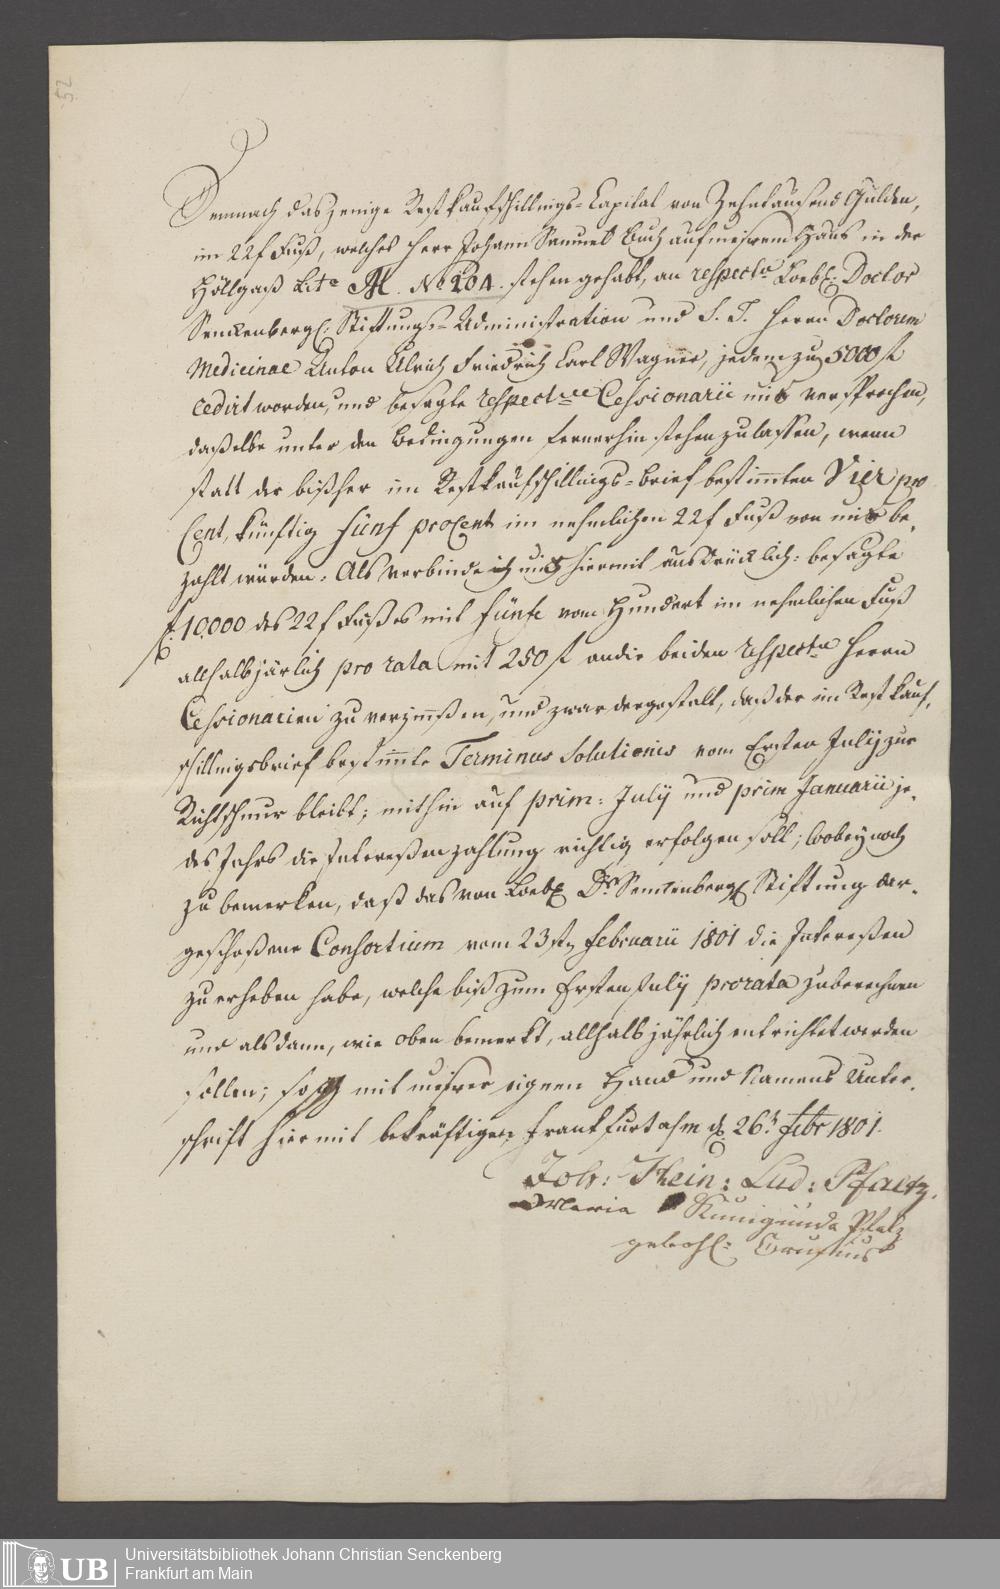 52
Demnach dasjenige Restkaufschillings-Capital von Zehntausend Gulden,
im 22 f Fuß, welches Herr Johann Samuel Buch auf meinem Haus in der
Höllgaß Lit. M. No 204. stehen gehabt, an respective Loebl: Doctor
Senckenbergl: Stiftungs-Administration und S. T. Herrn Doctorem
Medicinae Anton Ulrich Friedrich Carl Wagner, jedem zu 5000 f
cedirt worden, und besagte respective Cessionarii uns versprochen,
daßelbe unter den Bedingungen fernerhin stehen zu lassen, wenn
statt der bißher im Restkaufschillings-brief bestimmten Vier pro
Cent, künftig Fünf pro Cent im nehmlichen 22 f Fuß von uns be-
zahlt würden: Als verbinde ich uns hiermit ausdrücklich: besagte
f. 10,000 des 22 f Fußes mit Fünf vom Hundert im nehmlichen Fuß
allhalbjärlich pro rata mit 250 f an die beiden respective Herrn
Cessionarien zu verzinnßen, und zwar dergestalt, daß der im Restkauf-
schillingsbrief bestimmte Terminus Solutionis vom Ersten July zur
Richtschnur bleibt; mithin auf prim: July und prim Januarii je-
des Jahrs die Intereßenzahlung richtig erfolgen soll; wobey noch
zu bemerken, daß das von Loebl. Dr Senckenbergl Stiftung dar-
geschoßene Consortium vom 23sten Februarii 1801 die Intereßen
zu erheben habe, welche biß zum Ersten July pro rata zu berechnen
und alsdann, wie oben bemerkt, allhalbjährlich entrichtet werden
sollen; so mit unsrer eignen Hand und Namens Unter-
schrift hiermit bekräftigen Frankfurt a/m d. 26t Febr 1801.
Joh: Hein: Lud: Pfaltz.
Maria Kunigunda Pfalz
gebohl:
UB
Universitätsbibliothek Johann Christian Senckenberg
Frankfurt am Main